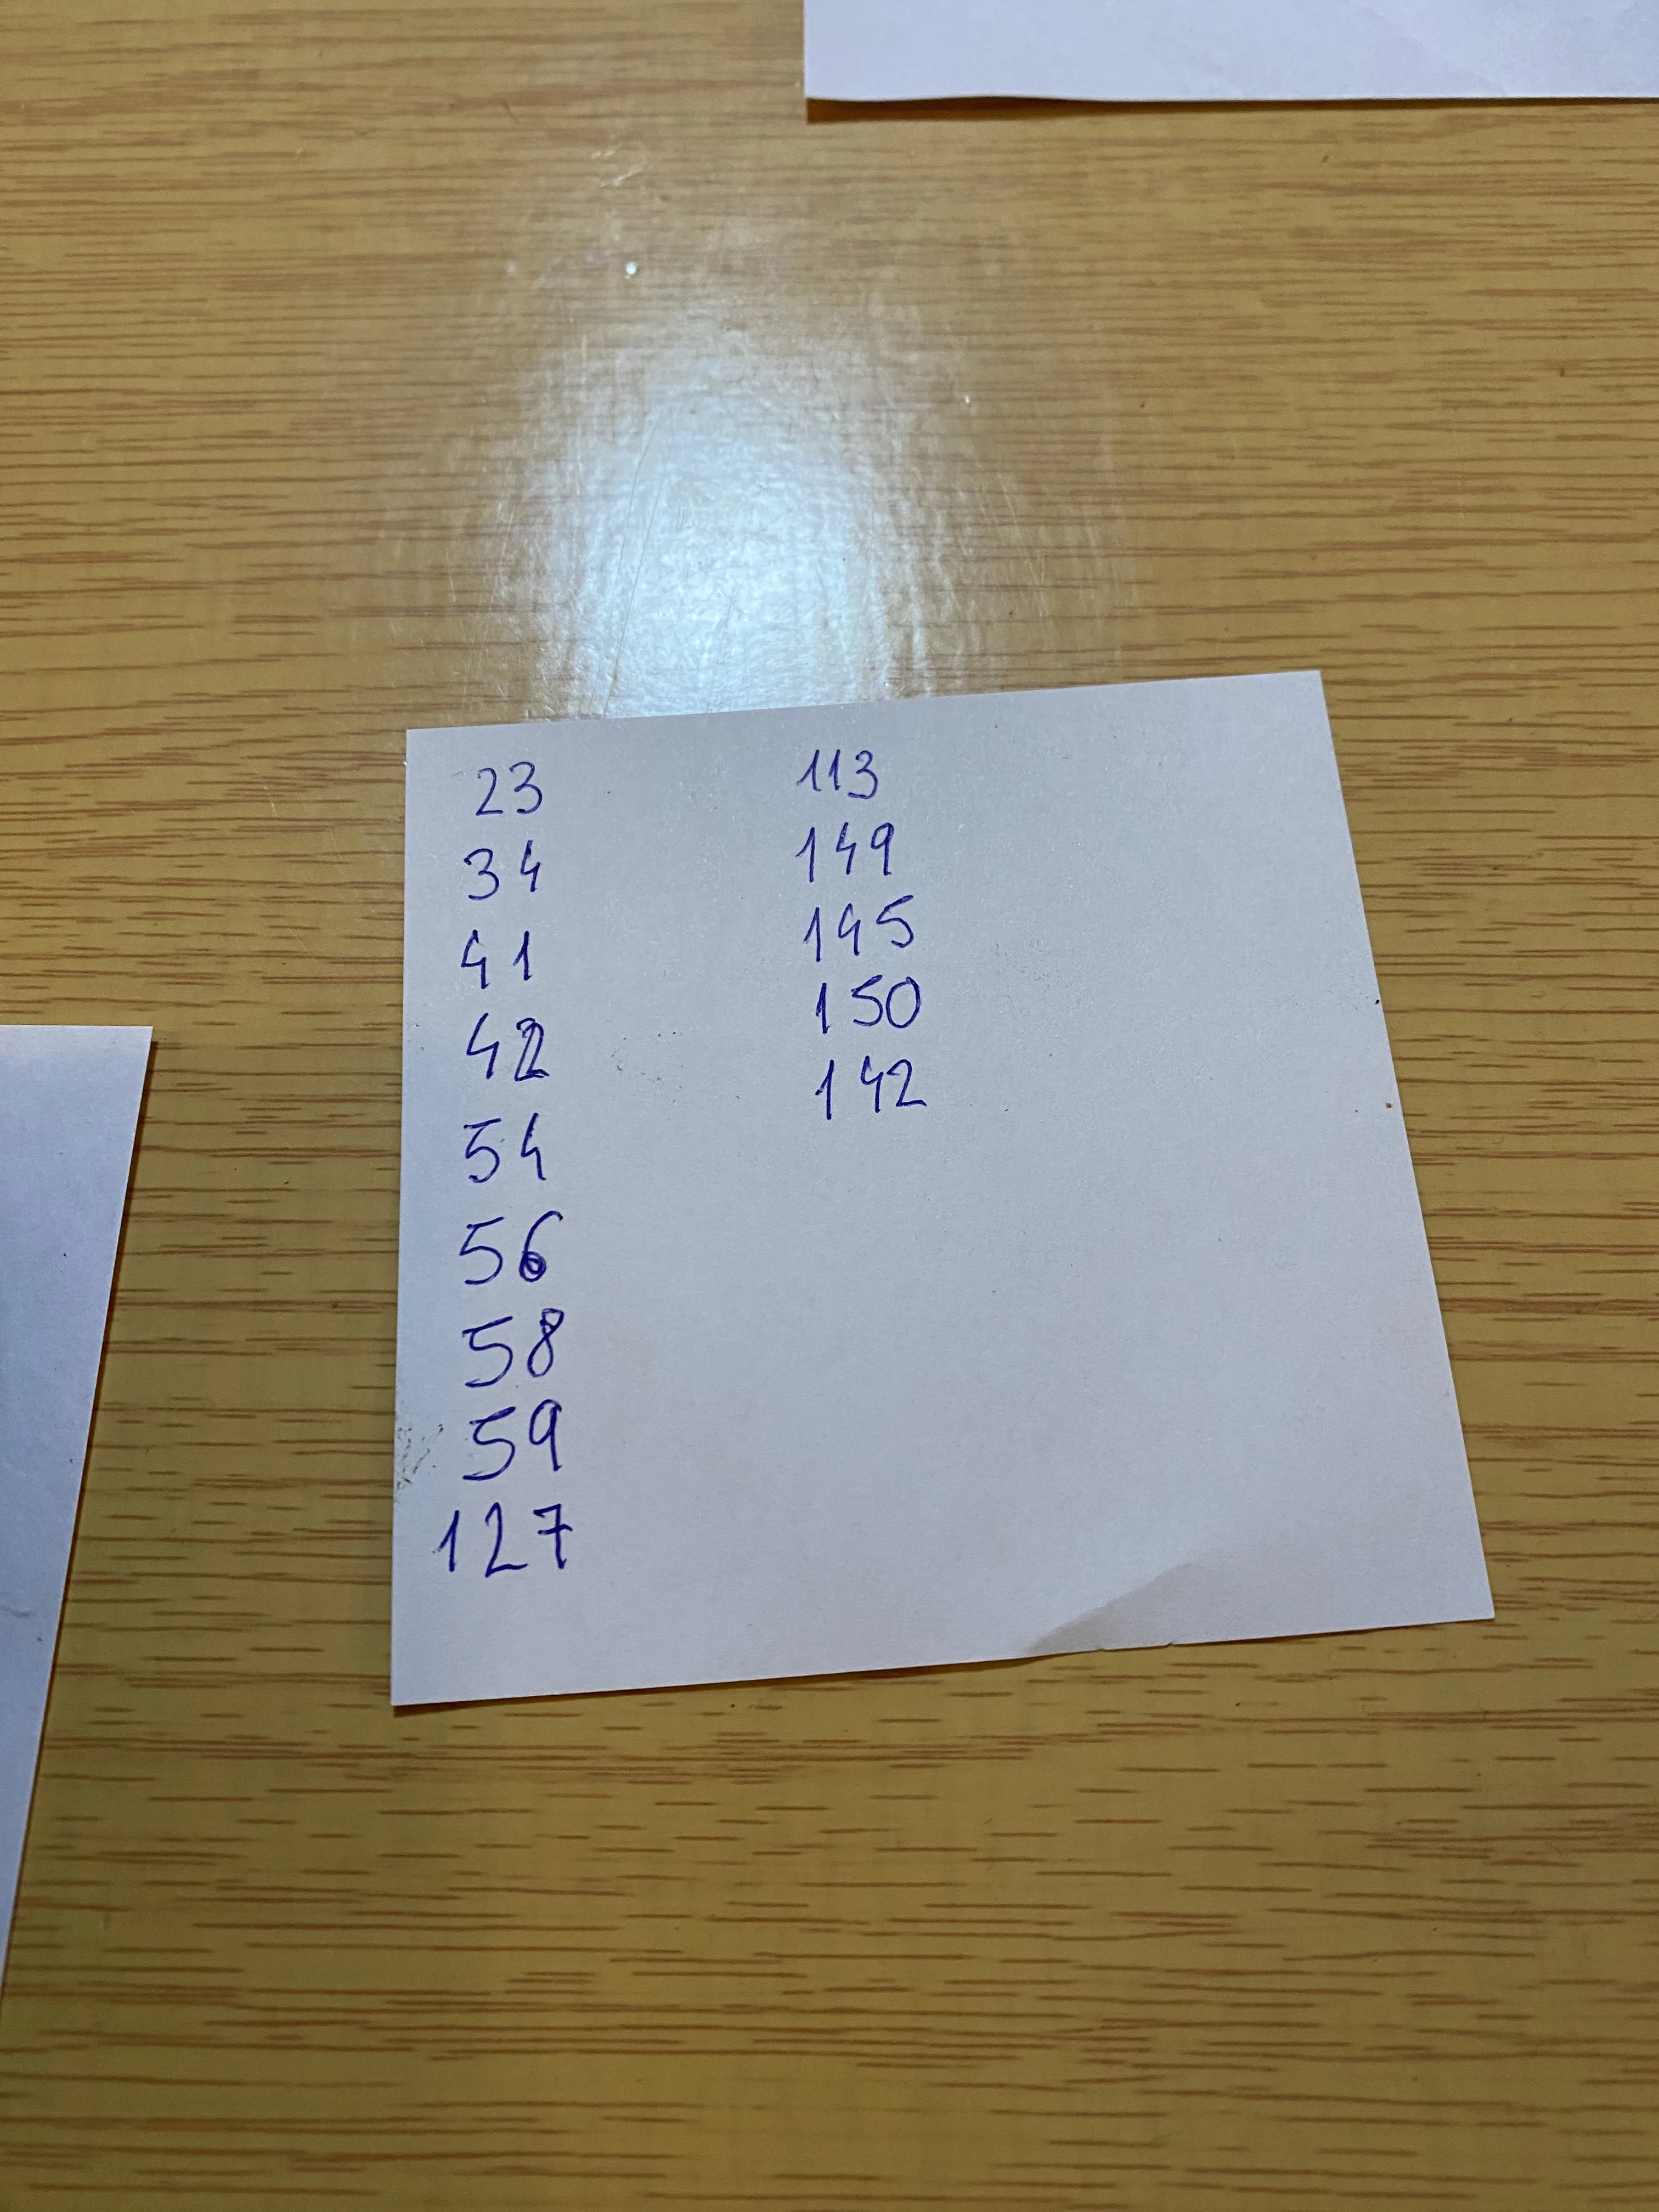 23
34
41
42
54
56
58
59
127
113
149
145
150
142